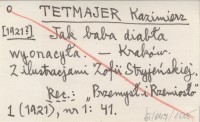 0 TETMAJER Kazimierz
[1921?] Jak baba diabła
wyonacyła. — Kraków.
Z ilustracjami Zofii Stryjeńskiej.
Rec.: „Przemysł i Rzemiosło"
1 (1921), nr 1: 41.